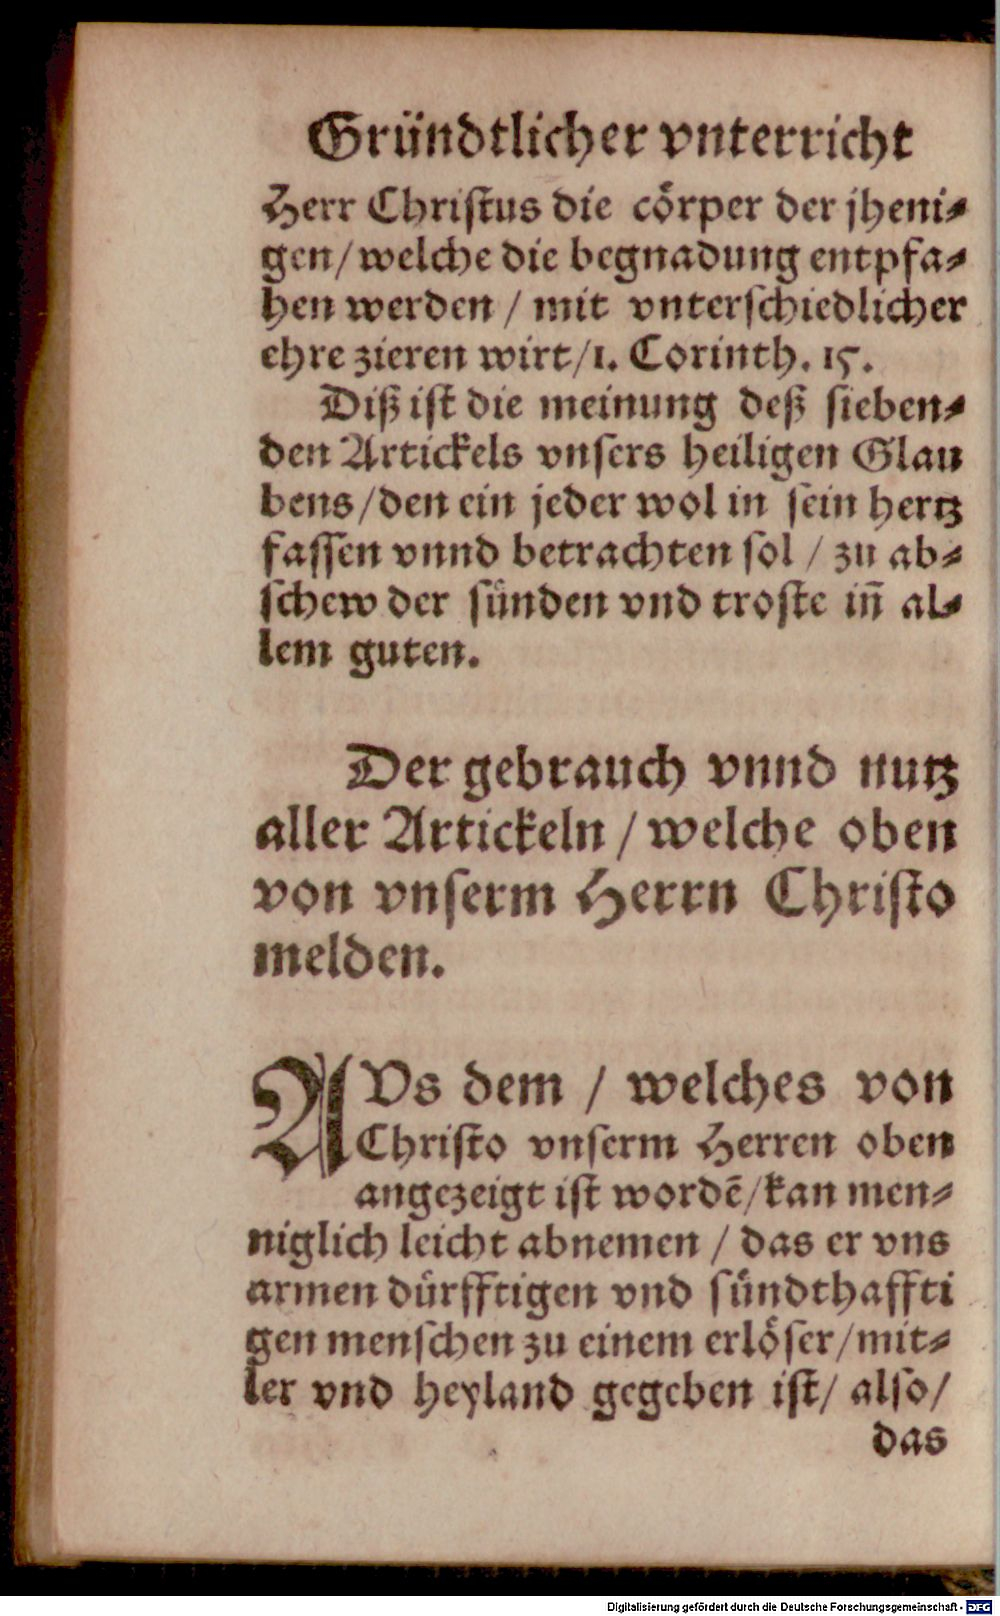 Gründtlicher vnterricht
Herr Christus die cörper der jheni-
gen/ welche die begnadung entpfa-
hen werden / mit vnterschiedlicher
ehre zieren wirt/1. Corinth. 15.
Diß ist die meinung deß sieben-
den Artickels vnsers heiligen Glau
bens/den ein jeder wol in sein hertz
fassen vnnd betrachten sol / zu ab-
schew der sünden vnd troste iñ al-
lem guten.
Der gebrauch vnnd nutz
aller Artickeln / welche oben
von vnserm Herrn Christo
melden.
AVs dem / welches von
Christo vnserm Herren oben
angezeigt ist wordē/kan men-
niglich leicht abnemen / das er vns
armen dürfftigen vnd sündthaffti
gen menschen zu einem erlöser/mit-
ler vnd heyland gegeben ist/ also/
das
Digitalisierung gefördert durch die Deutsche Forschungsgemeinschaft - DFG